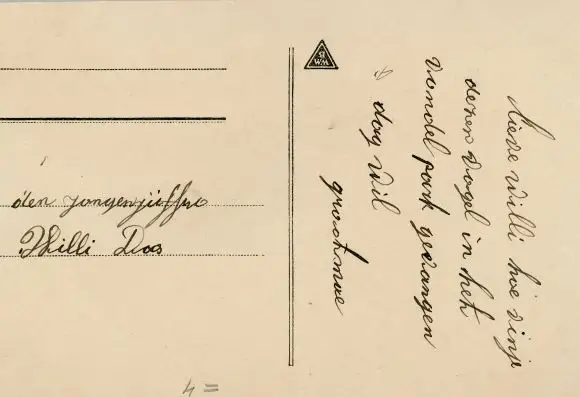 Lieve Willi hoe vinje
dezen vogel in het
vondel park gevangen
dag Wil
grootmoe
den jongenjuffru
Willi Dos
4 =